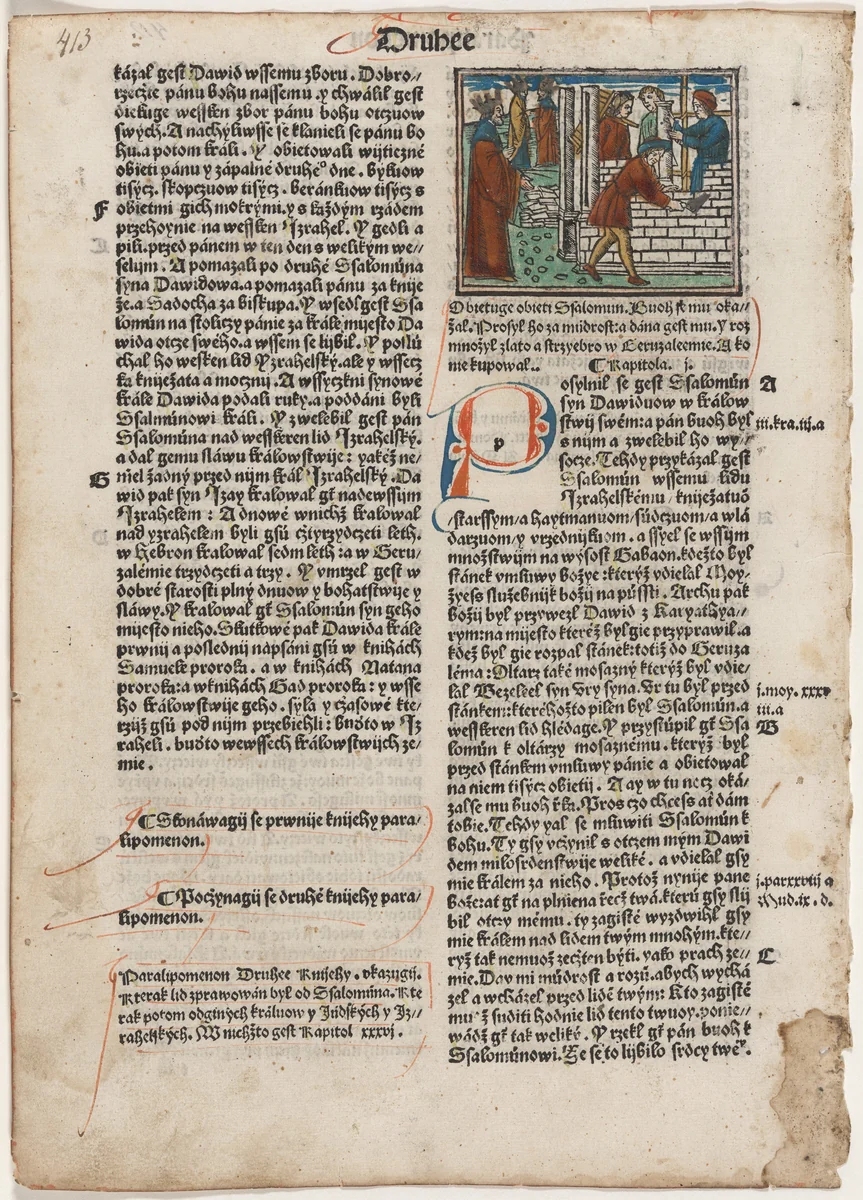 413
Druhee
kázal gest Dawid wssemu zboru. Dobro//
rzeczte pánu bohu nassemu. y chwálil gest
wessken zbor pánu bohu otczuow
swých. A nachyliwsse se klanieli se pánu bo
hu. a potom králi. Y obietowali wijtiezné
obieti pánu y zápalné druhéº dne. bykuow
tisýcz. skopczuow tisýcz. beránkuow tisýcz s
F
obietmi gich mokrými. y s každým rzádem
przehoynie na wessken Izrahel. Y gedli a
pili. przed pánem w ten den s welikým we//
selijm. A pomazali po druhé Ssalomúna
syna Dawidowa. a pomazali pánu za knije
že. a Sadocha za biskupa. Y wsedl gest Ssa
lomún na stoliczy pánie za krále mijesto Da
wida otcze swého. a wssem se lijbil. Y poslú
chal ho wesken lid Yzrahelský. ale y wssecz
ka kniježata a mocznij. A wssyczkni synowé
krále Dawida podali ruky. a poddáni byli
Ssalmúnowi králi. Y zwelebil gest pán
Ssalomúna nad wesskeren lid Izrahelský.
a dal gemu sláwu králowstwije: yakéž ne/
G
miel žádný przed nijm král Izrahelský. Da
wid pak syn Izay kralowal gt nadewssijm
Izrahelem: A dnowé w nichž kralowal
nad yzrahelem byli gsú cztyrzydczeti leth.
w Hebron kralowal sedm leth: a w Geru/
zalémie trzydczeti a trzy. Y vmrzel gest w
dobré starosti plný dnuow y bohatstwije y
sláwy. Y kralowal gt Ssalomún syn geho
mijesto nieho. Skutkowé pak Dawida krále
prwnij a poslednij napsáni gsú w knihách
Samuele proroka. a w knihách Natana
proroka: a w knihách Gad proroka: y wsse
ho králowstwije geho. syla y czasowé kte/
rzijž gsú pod nijm przebiehli: buďto w Iz
raheli. buďto wewssech králowstwijch ze/
mie.
¶ Skonáwagij se prwnije knijehy para/
lipomenon.
¶ Poczýnagij se druhé knijehy para/
lipomenon.
Paralipomenon Druhee Knijehy. vkazugij.
Kterak lid zprawowán byl od Ssalomúna. Kte
rak potom od giných králuow y Júdských y Iz//
rahelských. W nichžto gest Kapitol xxxvj.
Obietuge obieti Ssalomun. Buoh se mu oka//
žal. Prosyl ho za múdrost: a dána gest mu. Y roz
množyl zlato a strzyebro w Geruzaleemie. A ko
nie kupowal.. ¶ Kapitola. j.
P p
osylnil se gest Ssalomún
A
syn Dawiduow w králow
stwij swém: a pán buoh byl
iii.kra.iij.a
s nijm a zwelebil ho wy//
socze. Tehdy przykázal gest
Ssalomún wssemu lidu
Izrahelskému / kniježatuō
/starssym/a haytmanuom/súdczuom/a wlá
darzuom/y vrzednijkuom. a ssyel se wssijm
množstwijm na wysost Gabaon. kdežto byl
stánek vmluwy božye: kterýž vdielal Moy/
žyess služebnijk božij na pússti. Archu pak
božij byl przywezl Dawid z Karyathya//
rym: na mijesto kteréž byl gie przyprawil. a
kdež byl gie rozpal stánek: totiž do Geruza
léma: Oltarz také mosazný kterýž byl vdie/
lal Bezeleel syn Vry syna. Vr tu byl przed
j.moy.xxxv
stánkem: kteréhožto pilen byl Ssalomún. a
iii.a
wesskeren lid hledage. Y przystúpil gt Ssa
B
lomún k oltárzy mosaznému. kterýž byl
przed stánkem vmluwy pánie a obietowal
na niem tisýcz obietij. A ay w tu nocz oká/
zal se mu buoh rka. Pros czo chcess ať dám
tobie. Tehdy yal se mluwiti Ssalomún k
bohu. Ty gsy vczynil s otczem mým Dawi
dem milosrdenstwije weliké. a vdielal gsy
mie králem za nieho. Protož nynije pane
j.parxxviij a
bože: at gt na plniena rzecz twá. kterú gsy slij
Mud.ix.d.
bil otczy mému. ty zagisté wyzdwihl gsy
mie králem nad lidem twým mnohým. kte//
rýž tak nemuož zecžten býti. yako prach ze//
C
mie. Day mi múdrost a rozū. abych wychá
zel a wcházel przed lidē twým: Kto zagisté
muž súditi hodnie lid tento twuoy. ponie//
wádž gt tak weliký. Y rzekl gt pán buoh k
Ssalomúnowi. Že se to lijbilo srdcy twéº.